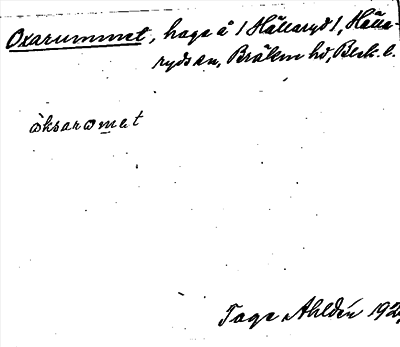 Oxarummet, hage å 1 Hällaryd 1, Hälla-
ryds sn, Bräkne hd, Blek. l.
öksarωmet
Tage Ahldén 192